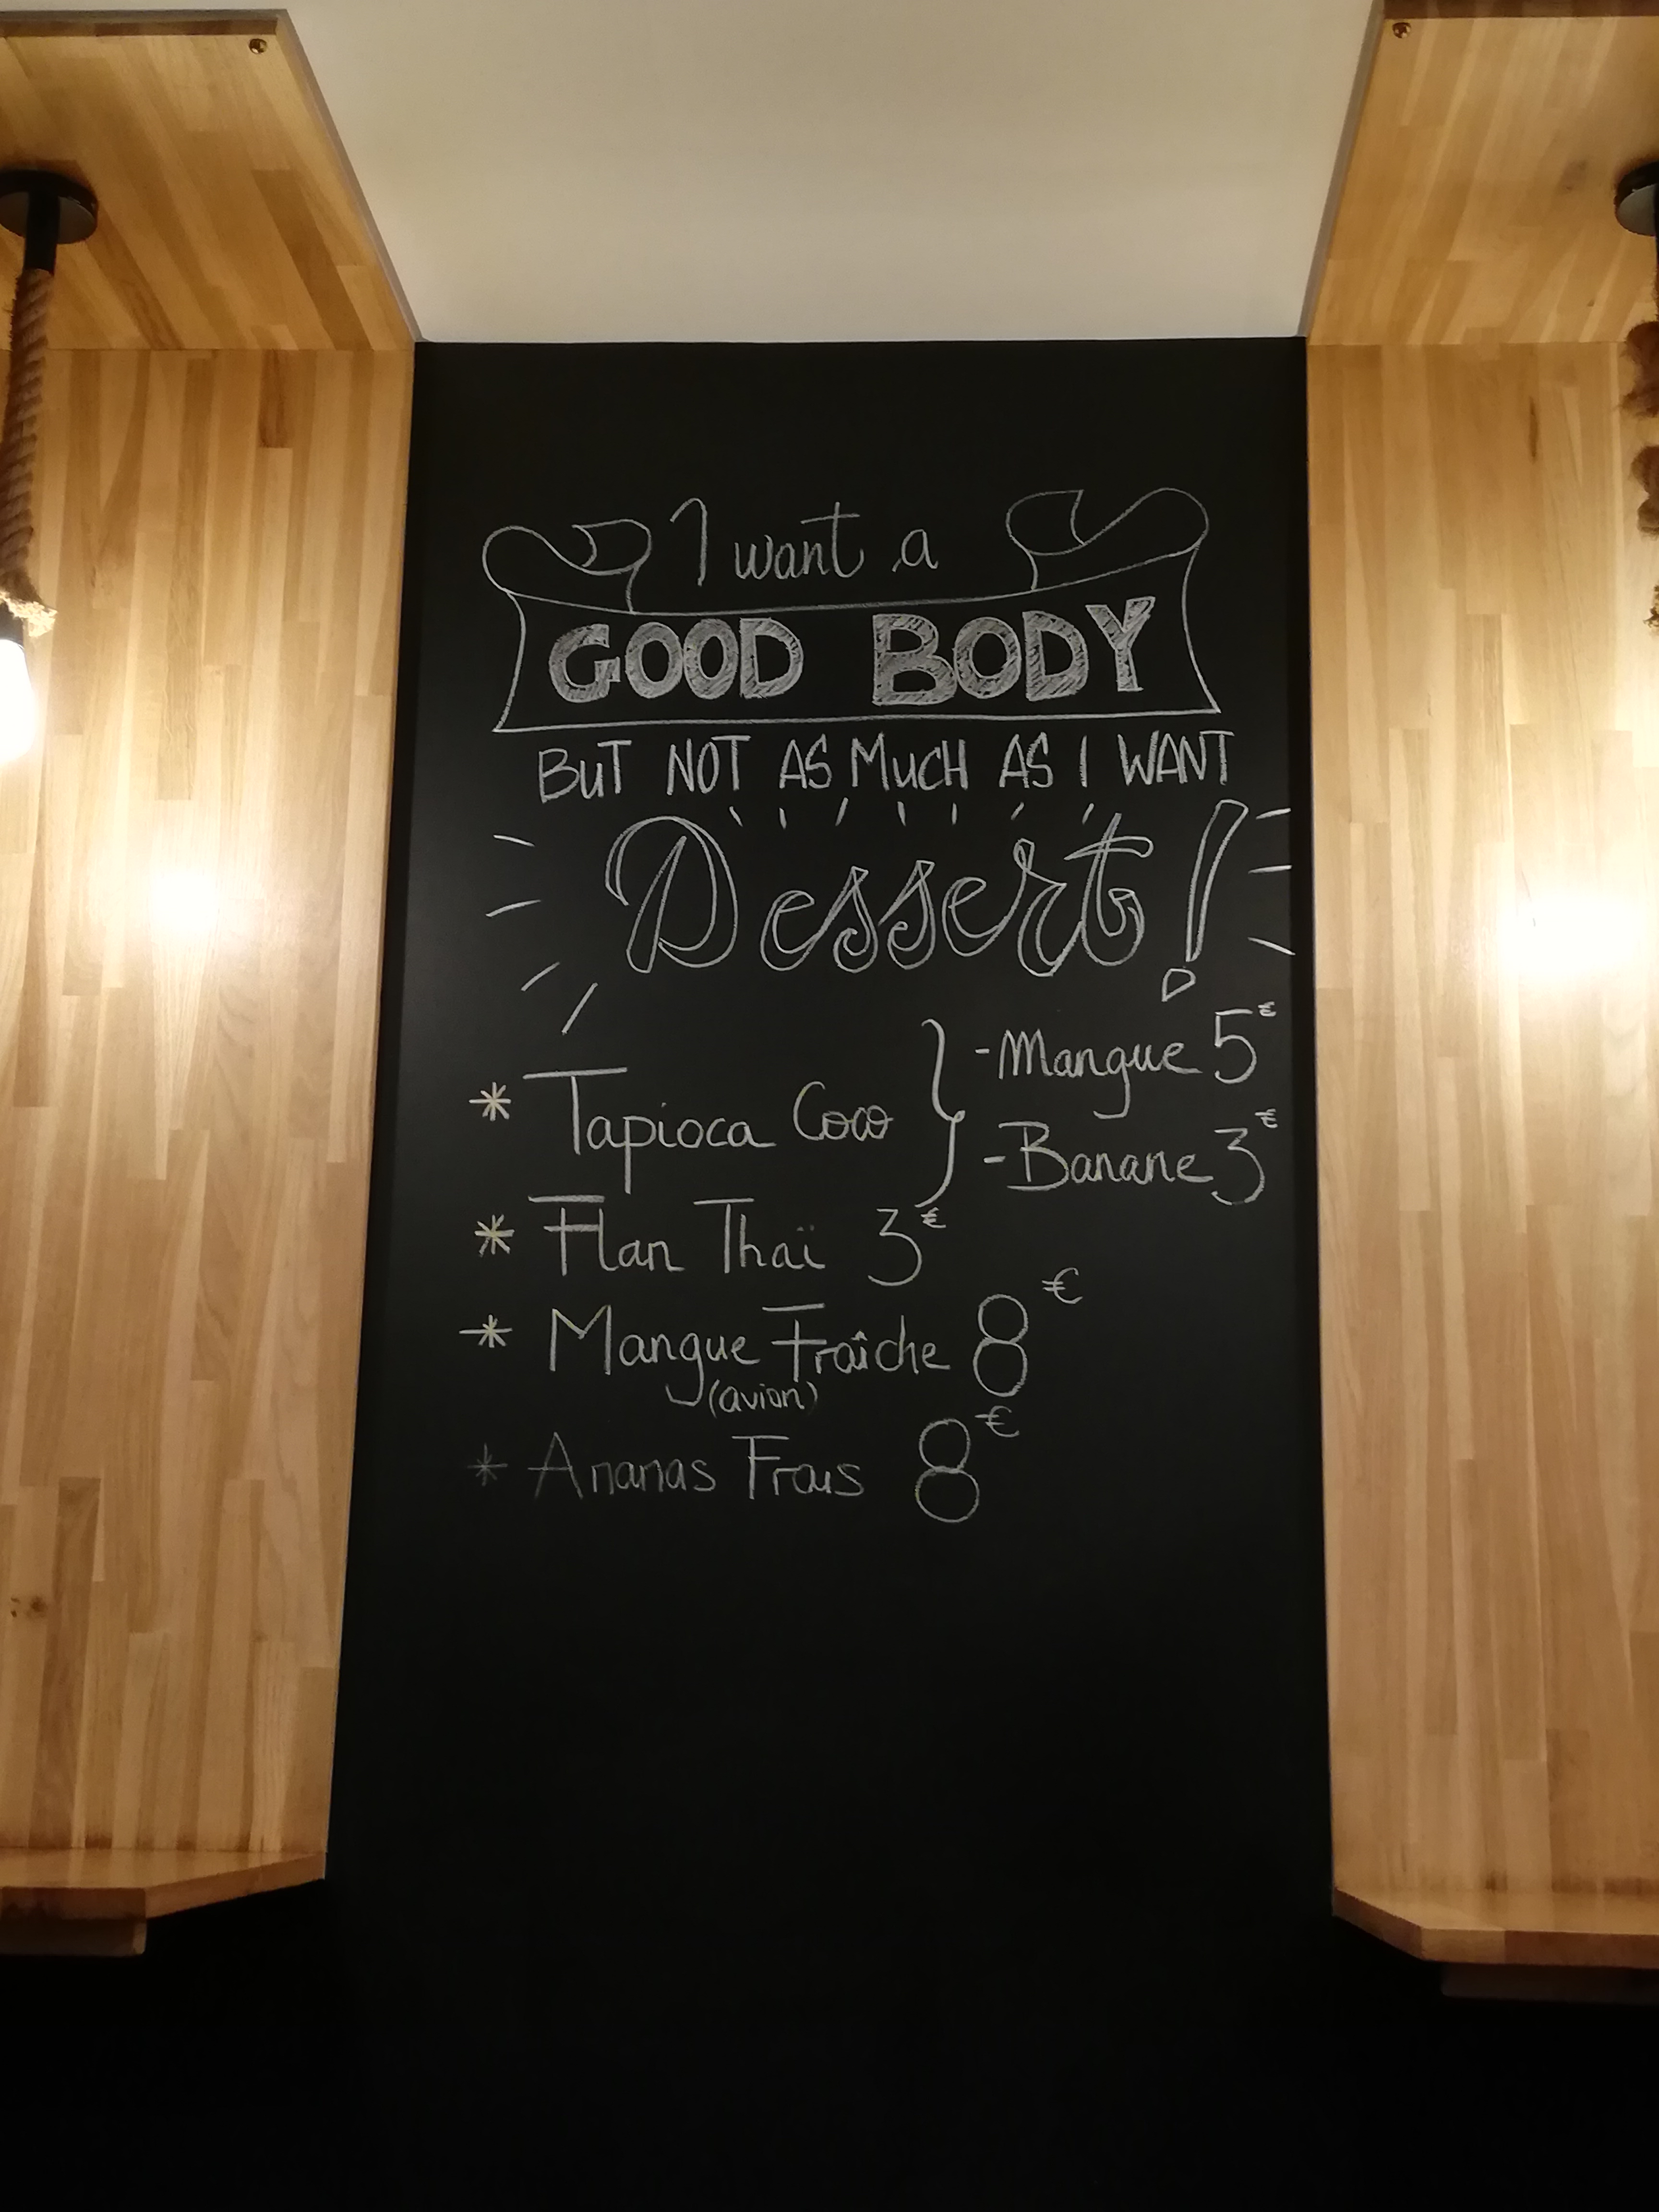 I want a
GOOD BODY
BUT NOT AS MUCH AS I WANT
Dessert!
* Tapioca Coco } - Mangue 5€
- Banane 3€
* Flan Thaï 3€
* Mangue Fraîche 8€
(avion)
* Ananas Frais 8€